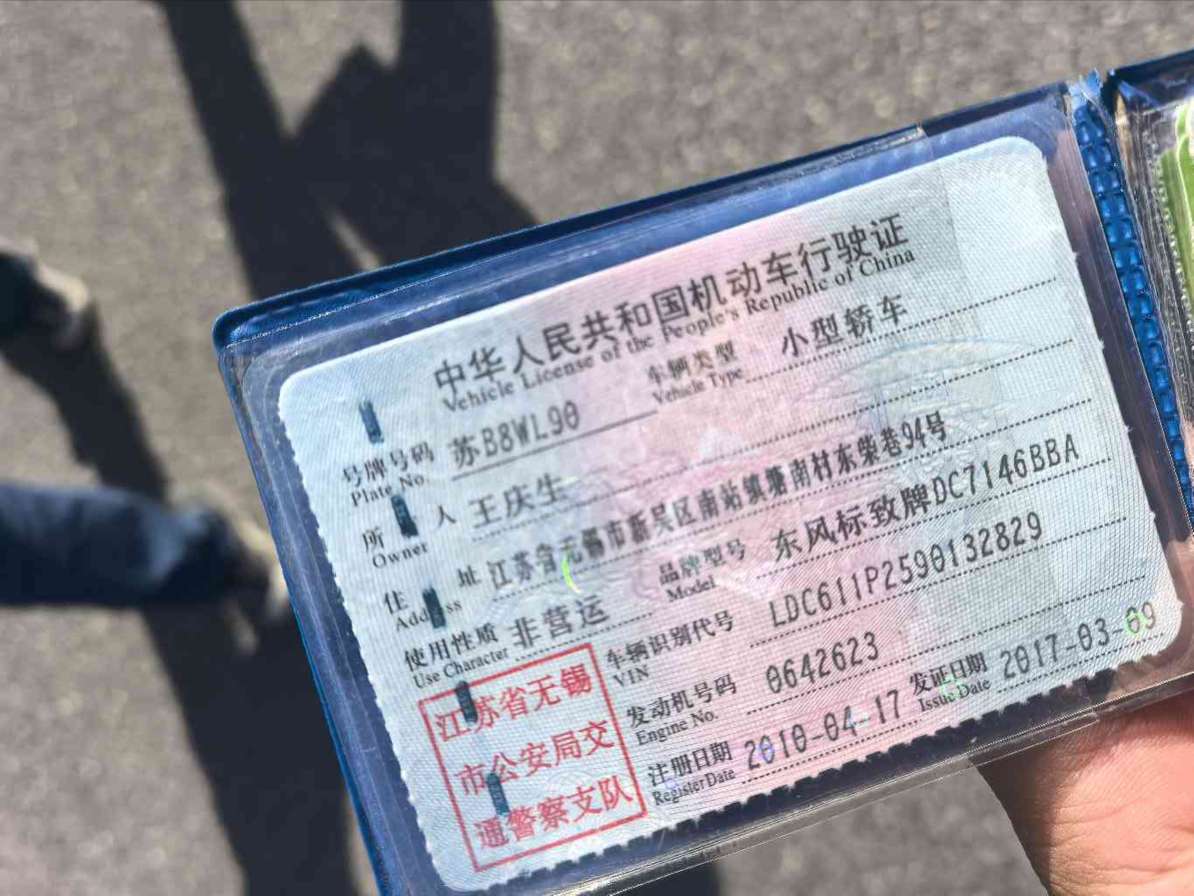 中华人民共和国机动车行驶证
Vehicle License of the People's Republic of China
号牌号码 苏B8WL90 车辆类型 小型轿车
Plate No. Vehicle Type
所 人 王庆生
Owner
住 址 江苏省无锡市新吴区南站镇塘南村东柴巷94号
Address
使用性质 非营运 品牌型号 东风标致牌DC7146BBA
Use Character Model
车辆识别代号 LDC611P2590132829
VIN
发动机号码 0642623
Engine No.
注册日期 2010-04-17 发证日期 2017-03-09
Register Date Issue Date
江苏省无锡
市公安局交
通警察支队